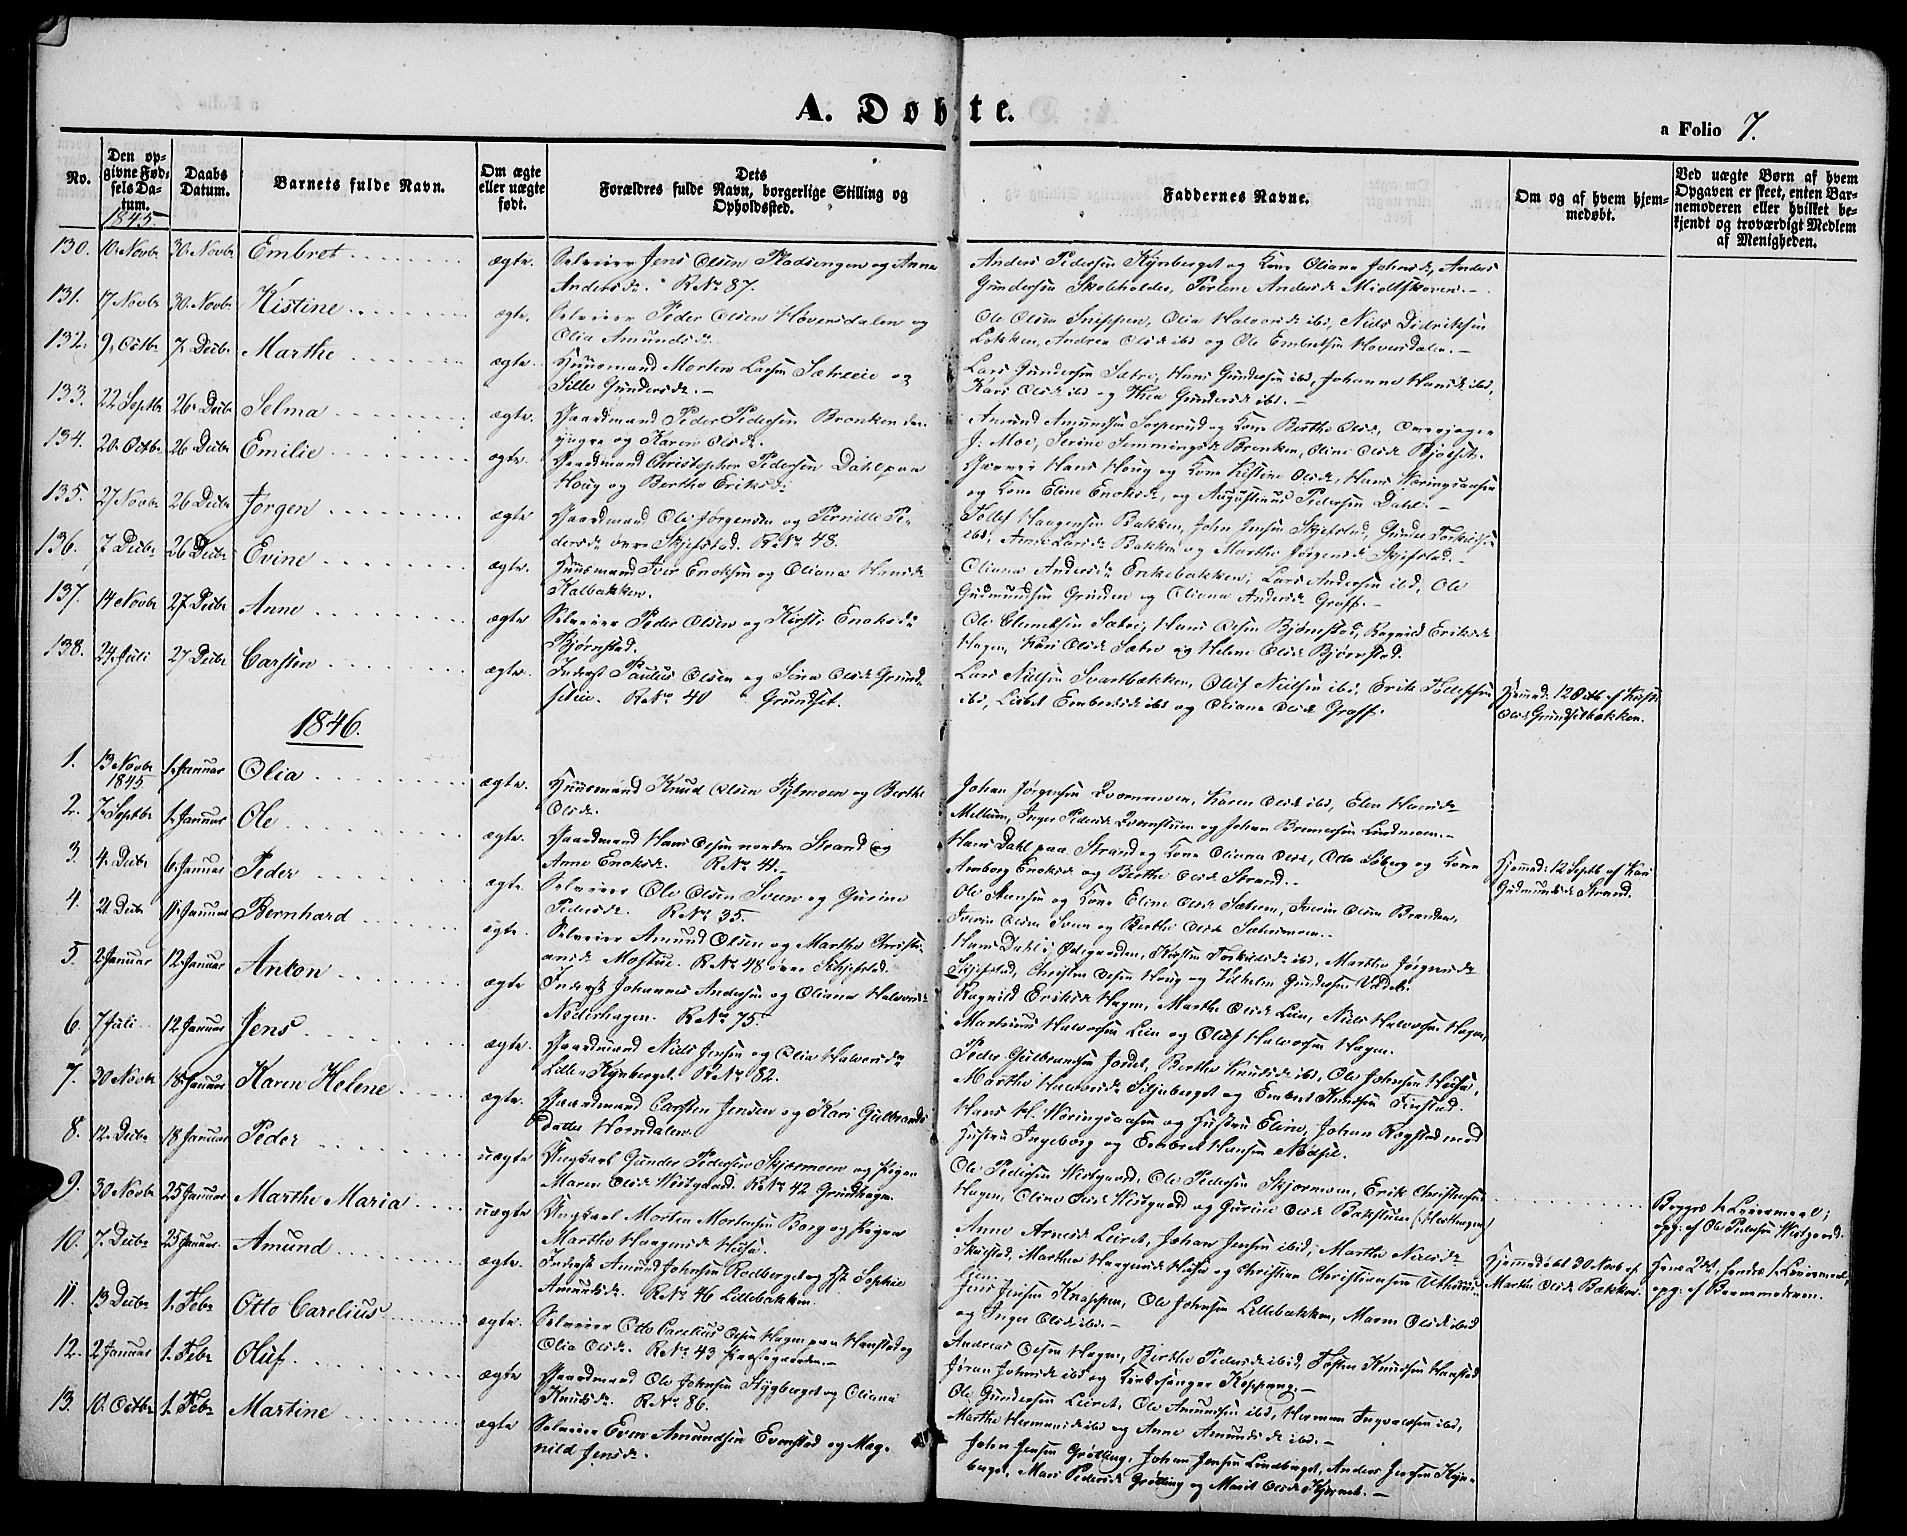 A. Døbte.
a Folio 7.
No.
Den op-
givne Fød-
sels Da-
tum.
1845
Daabs
Datum.
Barnets fulde Navn.
Om ægte
eller uægte
født.
Dets
Forældres fulde Navn, borgerlige Stilling og
Opholdssted.
Faddernes Navne.
Om og af hvem hjem-
medøbt.
Ved uægte Børn af hvem
Opgaven er skeet, enten Bar-
nemoderen eller hvilket be-
kjendt og troværdigt Medlem
af Menigheden.
130. 10 Novbr 30 Novbr Embret ægte. Selveier Jens Olsen Pladsengen og Anne
Andersdr. RNr 87.
Anders Pedersen Kynberget og Kone Oliana Johnsdr, Anders
Gundersen Skoleholder, Perlene Andersdr Midtskoven.
131. 17 Novbr 30 Novbr Kistine ægte. Selveier Peder Olsen Hoversdalen og
Olia Amundsdr.
Ole Olsen Snippen, Olia Halvorsdr ibd, Niels Didriksen
Løkken, Andrea Olsdr ibd og Ole Embretsen Hoversdalen.
132. 9 Octbr 7 Decbr Marthe ægte. Huusmand Morten Larsen Sætreeie og
Sille Gundersdr.
Lars Gundersen Sætre, Hans Gundersen ibd, Johanne Hansdr ibd,
Kari Olsdr ibd og Thea Gundersdr ibd.
133. 22 Septbr 26 Decbr Selma ægte. Gaardmand Peder Pedersen Bronken
og Karen Olsdr.
Amund Amundsen Sorperud og Kone Berthe Olsdr,
J. Moe, Serine Semmingsdr Bronken, Oline Olsdr Bjølset.
134. 20 Octbr 26 Decbr Emilie ægte. Gaardmand Christopher Pedersen Dahl paa
Houg og Berthe Eriksdr.
Hans Houg og Kone Kistine Olsdr, Hans Wæringsaasen
og Kone Eline Enoksdr, og Augustinus Pedersen Dahl.
135. 27 Novbr 26 Decbr Jørgen ægte Gaardmand Ole Jørgensen og Pernille Pe-
dersdr øvre Skjefstad. RNr 48.
Tollef Haagensen Bakken, John Jensen Skjefstad, Gunder Torkildsen
ibd, Anne Larsdr Bakken og Marthe Jørgensdr Skjefstad.
136. 7 Decbr 26 Decbr Evine ægte. Huusmand Iver Enoksen og Oliana Hansdr
Kalbakken.
Oliana Andersdr Enkebakken, Lars Andersen ibd, Ole
Gudmundsen Grinden og Oliana Andersdr Graff.
137. 14 Novbr 27 Decbr Anne ægte Selveier Peder Olsen og Kirsti Enoksdr
Bjørnstad.
Ole Clemetsen Sætre, Hans Olsen Bjørnstad, Ragnild Eriksdr
Hagen, Kari Olsdr Sæter og Helene Olsdr Bjørnstad.
138. 24 Juli 27 Decbr Carsten ægte. Inderst Paulus Olsen og Sina Olsdr Grund-
seteie. RNr 40 Grundset.
Lars Nielsen Svartbækken, Oluf Nielsen ibd, Erik Tollefsen
ibd, Lisbet Embretsdr ibd og Oliana Olsdr Graff.
Hjemmed: 12 Octb af Kirsti
Olsdr Grundsetbækken.
1846.
1. 13 Novbr
1845 1 Januar Olia ægte. Huusmand Knud Olsen Kylmoen og Berthe
Olsdr.
Johan Jørgensen Qværnmoen, Karen Olsdr ibd, Elen Hansdr
Mellum, Inger Pedersdr Qvernstuen og Johan Brenersen Lindmoen.
2. 7 Septbr 1 Januar Ole ægte Gaardmand Hans Olsen nordre Strand og
Anne Enoksdr. RNr 41.
Hans Dahl paa Strand og Kone Oliana Olsdr, Otto Søberg og Kone
Amborg Enoksdr og Berthe Olsdr Strand.
Hjemmed: 12 Septb af Kari
Gudmundsdr Strand.
3. 4 Decbr 6 Januar Peder ægte Selveier Ole Olsen Sveen og Gurine
Pedersdr. RNr 35.
Ole Monsen og Kone Eline Olsdr Sætren, Iverin Olsen Branden,
Iverin Olsen Sveen og Berthe Olsdr Sætermoen.
4. 21 Decbr 11 Januar Bernhard ægte. Selveier Amund Olsen og Marthe Christi-
ansdr Mostue. RNr 48 øvre Skjefstad.
Hans Dahl i Ødegaarden, Kirsten Torkildsdr ibd, Marthe Jørgensdr
Skjefstad, Christen Olsen Houg og Vilhelm Gundersen Vadet.
5. 2 Januar 12 Januar Anton ægte Inderst Johannes Andersen og Oliana Halvorsdr
Nederhagen. RNr 75.
Ragnild Eriksdr Hagen, Marthe Olsdr Lien, Niels Halvorsen Hagen,
Martinus Halvorsen Lien og Oluf Halvorsen Hagen.
6. 7 Juli 12 Januar Jens ægte. Gaardmand Niels Jensen og Olia Halvorsdr
Lille Kynberget. RNr 82.
Peder Gulbrandsen Jordet, Berthe Knudsdr ibd, Ole Johnsen Husu,
Marthe Halvorsdr Siljuberget og Embret Knudsen Finstad.
7. 30 Novbr 18 Januar Karen Helene ægte. Gaardmand Carsten Jensen og Kari Gulbrands
Datter Horndalen.
Hans H. Wæringsaasen og Hustru Eline, Johan Røgstad med
Hustru Ingeborg og Embret Hansen Nødset.
8. 12 Decbr 18 Januar Peder uægte Ungkarl Gunder Pedersen Skjærmoen og Pigen
Maren Olsdr Westgaard. RNr 42 Grindhagen.
Ole Pedersen Westgaard, Ole Pedersen Skjærmoen, Erik Christensen
Hagen, Oline Olsdr Westgaard og Gurine Olsdr Bakstuen (Westhagen)
Begges 1 Leiermaal;
opg. af Ole Pedersen Westgaard.
9. 30 Novbr 25 Januar Marthe Maria uægte Ungkarl Morten Mortensen Borg og Pigen
Marthe Haagensdr Husu.
Anne Arnesdr Leiret, Johan Jensen ibid, Marthe Nielsdr
Skulstad, Marthea Haagensdr Husu og Christian Christiansen Uthuus-
eie.
Hjemmedøbt 30 Novb af
Marthe Olsdr Bækken.
Hans 2det, hendes 1 Leiermaal;
opg. af Barnemoderen.
10. 7 Decbr 25 Januar Amund ægte. Inderst Amund Johnsen Rødberget og H. Sophie
Amundsdr. RNr 46 Lillebakken.
Jens Jensen Knappen, Ole Johnsen Lillebakken, Maren Olsdr ibd
og Inger Olsdr ibd.
11. 13 Decbr 1 Febr Otto Carelius ægte. Selveier Otto Carelius Olsen Hagen paa Hanstad og
Olia Olsdr. RNr 43 Prestegaarden.
Andreas Olsen Hagen, Berthe Pedersdr ibid, Tosten Knudsen Hanstad
Jøran Johnsdr ibd og Kirkesanger Koppang.
12. 2 Januar 1 Febr Oluf ægte Gaardmand Ole Johnsen Stygberget og Oliana
Knudsdr. RNr 86.
Ole Gundersen Leiret, Ole Amundsen ibd, Herman Ingvaldsen ibd,
Marthe Hermansdr ibd og Anne Amundsdr ibd.
13. 10 Octbr 1 Febr Martine ægte Selveier Even Amundsen Evenstad og Mag-
nild Jensdr.
John Jensen Grøtting, Johan Jensen Lindberget, Anders Jensen Kyn-
berget, Mari Pedersdr Grøtting og Marit Olsdr Kjernet.